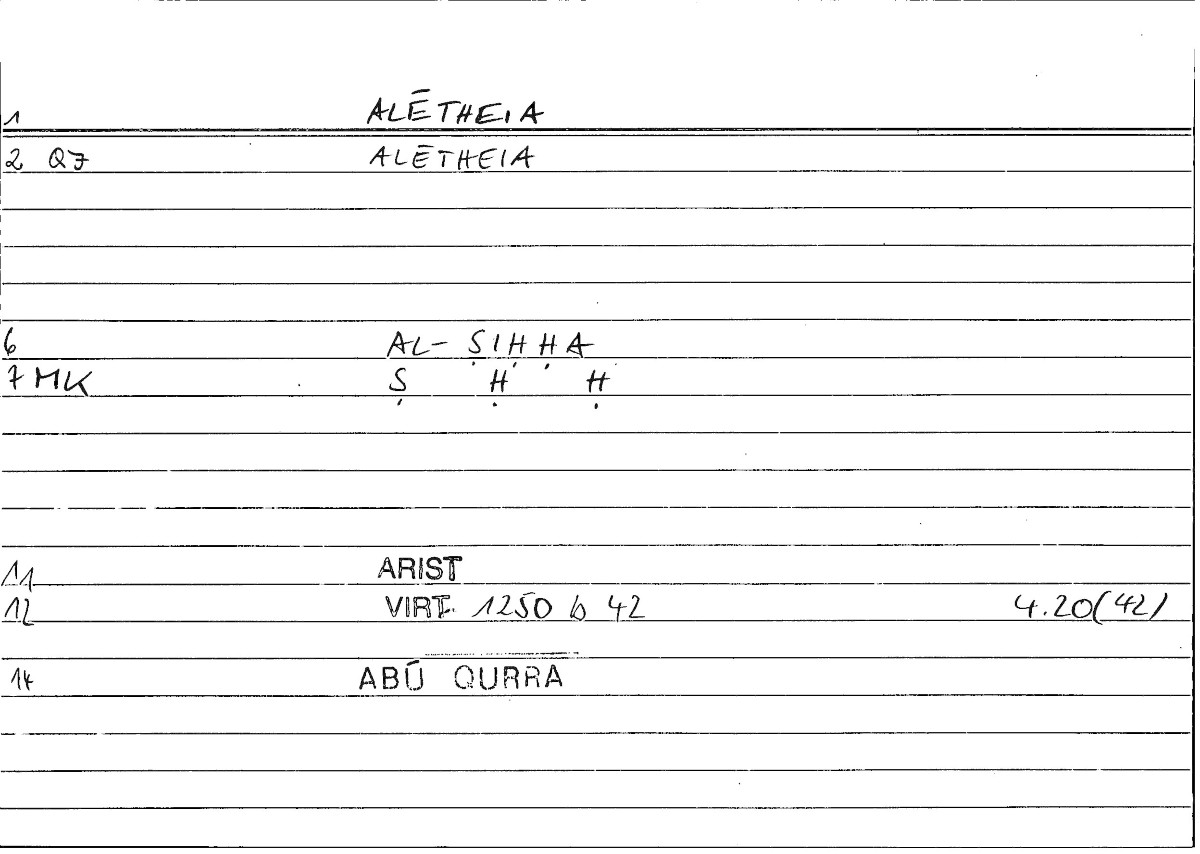 1 ALĒTHEIA
2 Q7 ALĒTHEIA
6 AL-ṢIḤḤA
7 MK Ṣ Ḥ Ḥ
11 ARIST
12 VIRT. 1250 b 42 4.20(42)
14 ABŪ QURRA